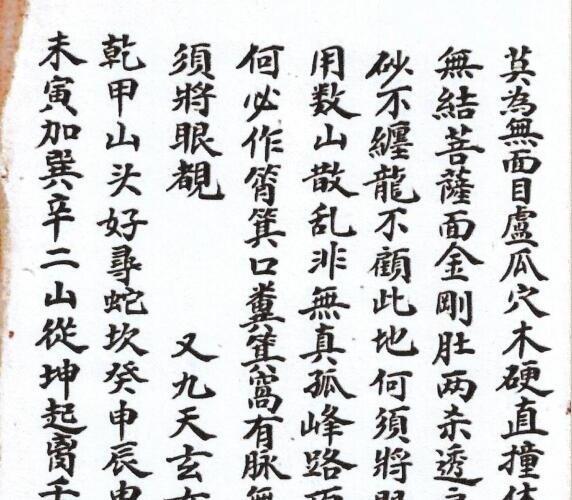 莫為無面目盧瓜穴木硬直撞
無結菩薩面金剛肚两杀透
砂不纏龍不顧此地何須將
用数山散乱非無真孤峰路
何必作筲箕口糞箕窩有脉無
須將眼覩　又九天玄
乾甲山头好尋蛇坎癸申辰
未寅加巽辛二山從坤起离